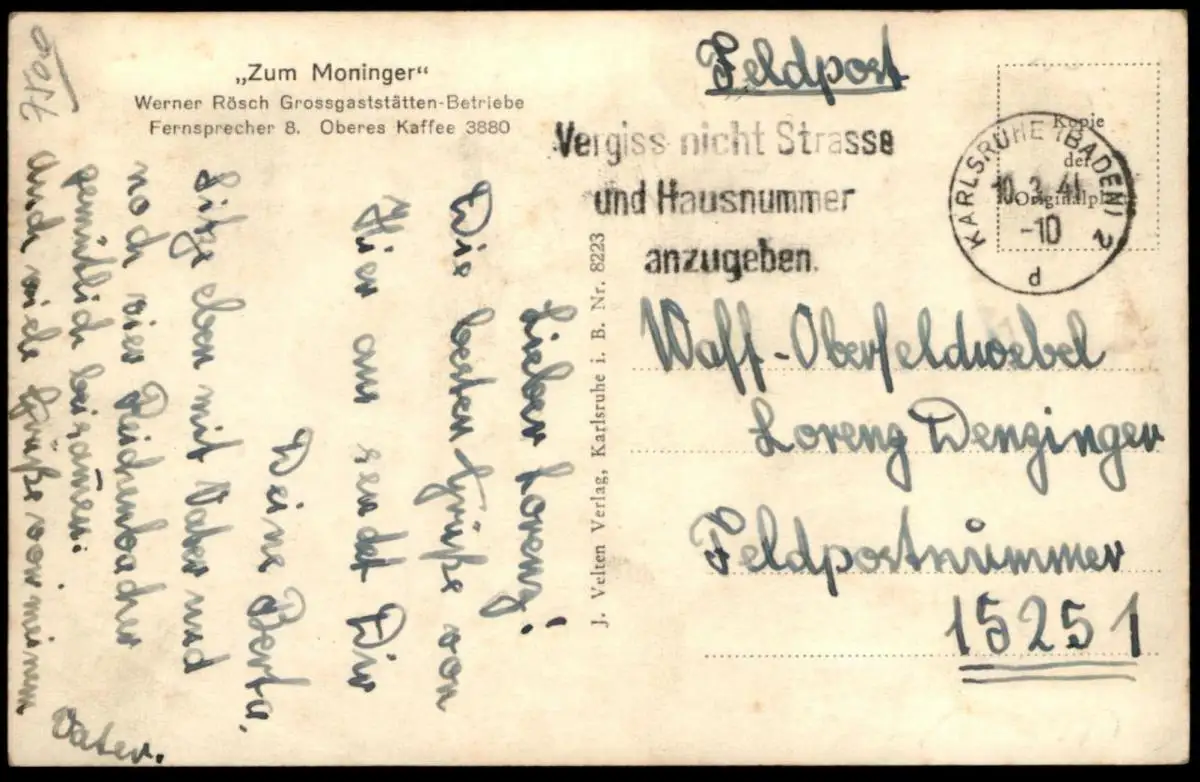 „Zum Moninger“
Werner Rösch Grossgaststätten-Betriebe
Fernsprecher 8. Oberes Kaffee 3880
Lieber Lorenz!
Die besten Grüße von
Hier aus sendet Dir
Deine Berta.
Sitze eben mit Vater und
noch vier Reichenbacher
gemütlich beisamen.
Auch viele Grüße von meinem
Vater.
J. Velten Verlag, Karlsruhe i. B. Nr. 8223
Feldpost
Vergiss nicht Strasse
und Hausnummer
anzugeben.
Kopie
der
Originalph
KARLSRUHE (BADEN) 2
10.3.41
-10
d
Waff-Oberfeldwebel
Lorenz Denzinger
Feldpostnummer
15251